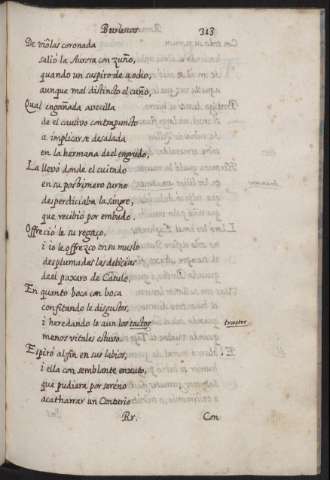 Burlescos 313
De violas coronada
salió la Aurora con zuño,
quando un suspiro de a ocho,
aunque mal distincto el cuño,
Qual engañada avecilla
de el cautivo contrapunto
a implicarse desalada
en la hermana de el engrudo,
La llevó donde el cuitado
en su postrimero turno
desperdiciaba la sangre,
que recibió por embudo.
Ofrecióle su regaço,
i io le ofrezco en su muslo
desplumadas las delicias
de el paxaro de Catulo,
En quanto boca con boca
confitandole disgustos,
i heredandole aun los trastos tractos
menos vitales estuvo.
Espiró al fin en sus labios,
i ella con semblante enxuto,
que pudiera por sereno
acatharrar un Centurio
Rr. Con